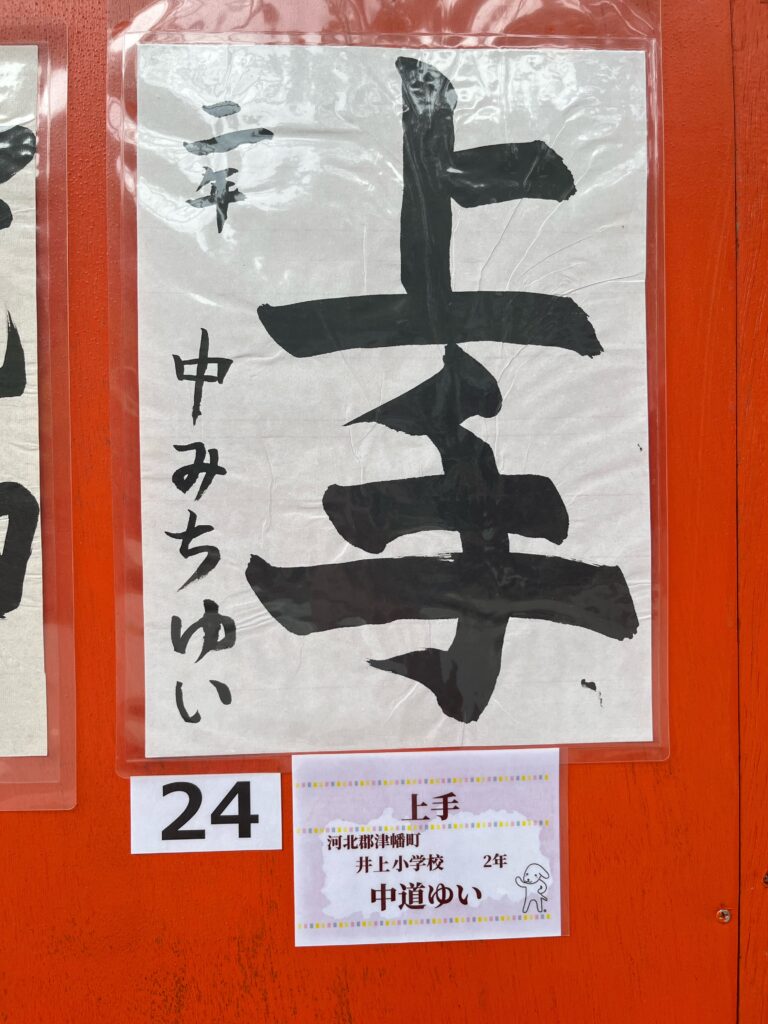 上手
二年
中みちゆい
24
上手
河北郡津幡町
井上小学校 2年
中道ゆい